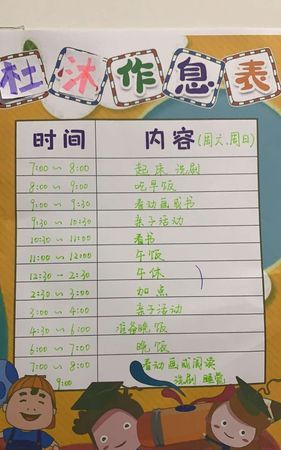 杜沐作息表
时间 内容(周六、周日)
7:00~8:00 起床 洗刷
8:00~9:00 吃早饭
9:00~9:30 看动画或书
9:30~10:30 亲子活动
10:30~11:00 看书
11:00~12:00 午饭
12:30~2:30 午休
2:30~3:00 加点
3:00~4:00 亲子活动
4:30~6:00 准备晚饭
6:00~7:00 晚饭
7:00~8:00 看动画或阅读
9:00 洗刷 睡觉